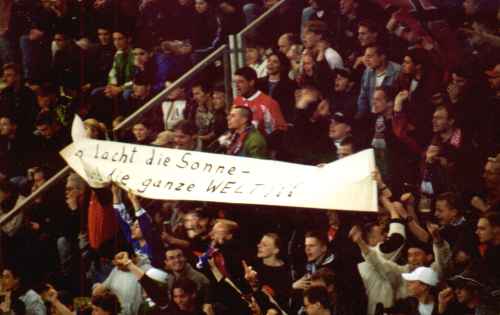 lacht die Sonne-
die ganze WELT!!!